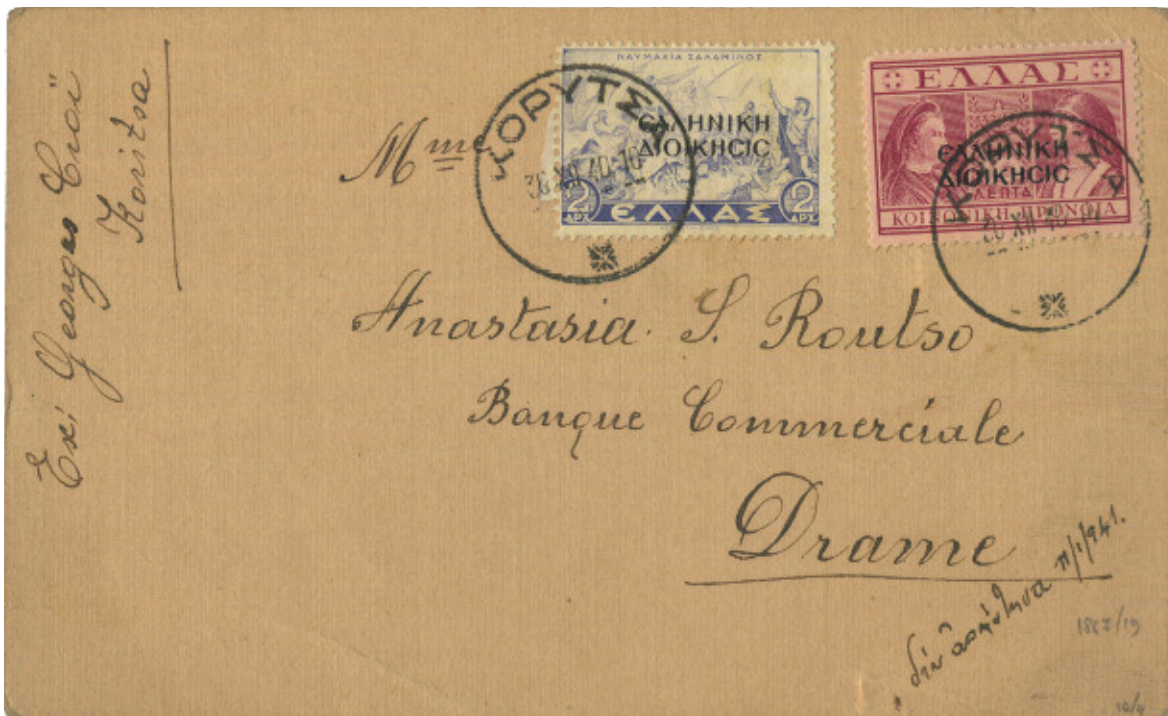 Exp: Georges
Koritsa
ΝΑΥΜΑΧΙΑ ΣΑΛΑΜΙΝΟΣ
ΕΛΛΗΝΙΚΗ
ΔΙΟΙΚΗCΙC
2 ΔΡΧ ΕΛΛΑΣ 2 ΔΡΧ
ΚΟΡΥΤΣΑ
30 XII 40-10
ΕΛΛΑΣ
ΕΛΛΗΝΙΚΗ
ΔΙΟΙΚΗCΙC
ΛΕΠΤΑ
ΚΟΙΝΩΝΙΚΗ ΠΡΟΝΟΙΑ
ΚΟΡΥΤΣΑ
XII 40
Mme
Anastasia. S. Routso
Banque Commerciale
Drame
11/1/941.